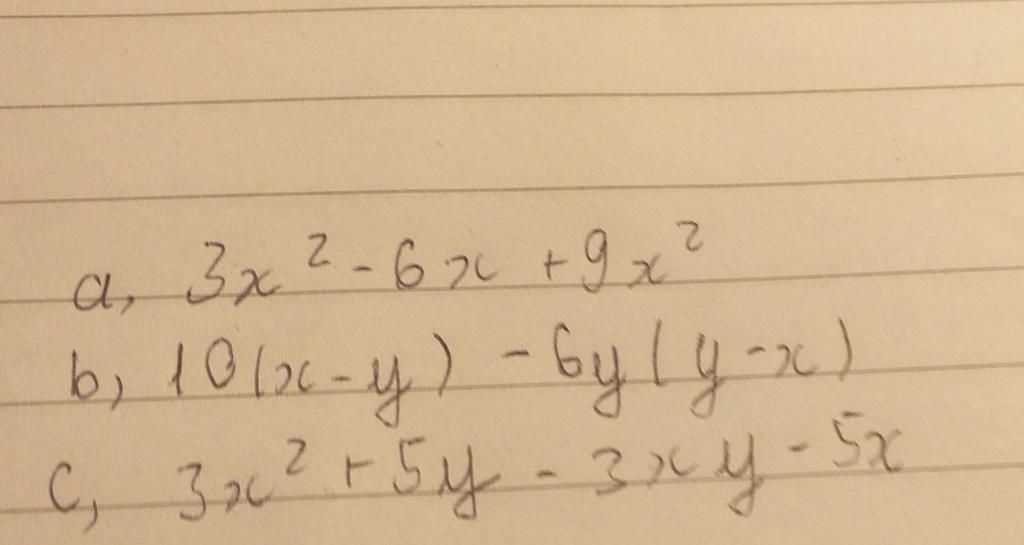 a, 3x² - 6x + 9x²
b, 10(x - y) - 6y(y - x)
c, 3x² + 5y - 3xy - 5x